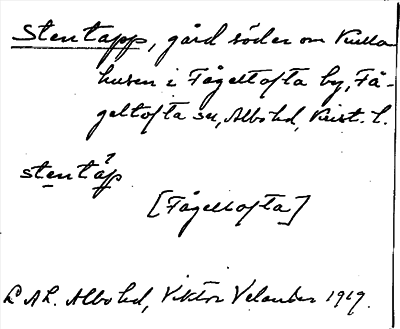 Stentapp, gård söder om Kulla-
husen i Fågeltofta by, Få-
geltofta sn, Albo hd, Krist. l.
stentap
[Fågeltofta]
LAL. Albo hd, Viktor Velander 1919.